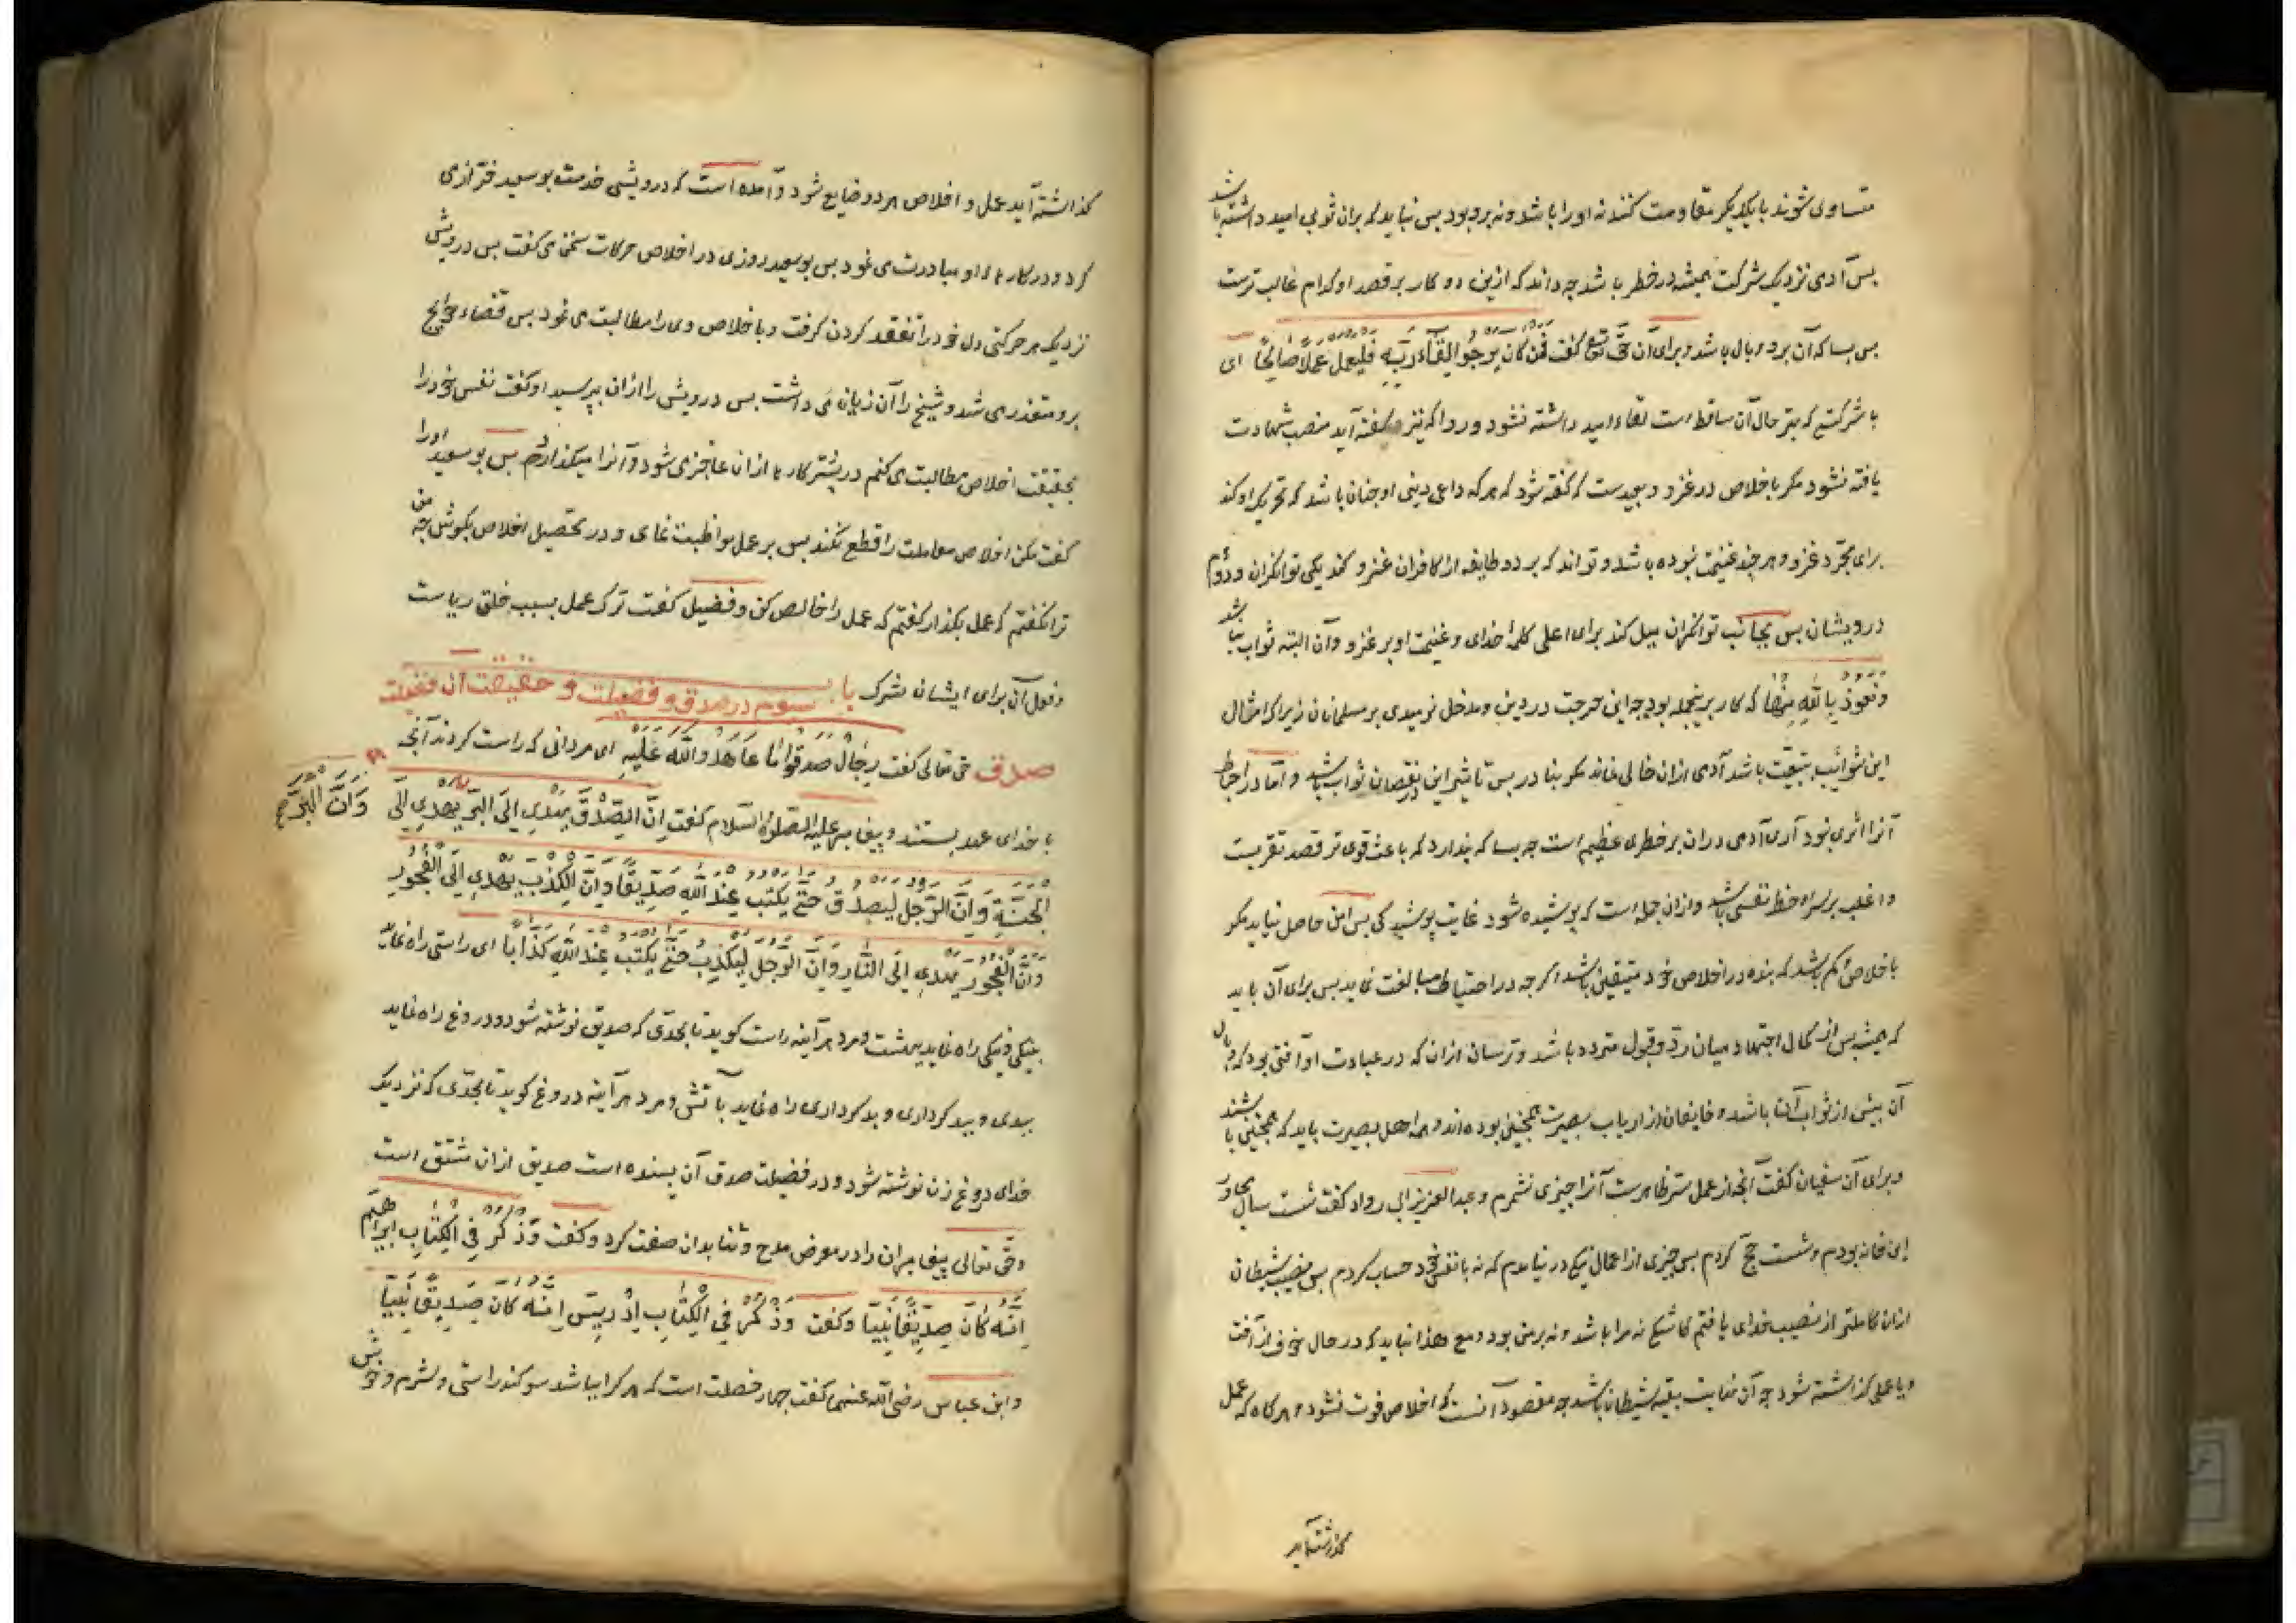 متساوی شوند با یکدیگر مقاومت کنند نه او را باشد و نه برو بود بس نباید که بران ثوابی امید داشته باشد
بس آدمی نزدیک شرکت همیشه در خطر باشد چه داند که ازین دو کار بر قصد او کدام غالب ترست
بس بسا که آن برو وبال باشد و برای آن حق تع گفت فَمَن كَانَ يَرْجُوا لِقَاءَ رَبِّهِ فَلْيَعْمَلْ عَمَلًا صَالِحًا ای
با شرکتی که بهتر حال آن ساقط است لقاء امید داشته نشود و روا که نیز گفته آید منصب شهادت
یافته نشود مگر باخلاص در غزو و بعیدست که گفته شود که هر که داعی دینی او چنان باشد که تحریک او کند
برای مجرد غزو و هر چند غنیمت نبوده باشد و تواند که بر دو طایفه از کافران غزو کند یکی توانگران و دوم
درویشان بس بجانب توانگران میل کند برای اعلی کلمۀ خدای و غنیمت او بر غزو و آن البته ثواب نباشد
ونعوذ بالله منها که کار برینجمله بود چه این حرجت در دین و مدخل نومیدی بر مسلمانان زیرا که امثال
این شوائب بتبعیت باشد آدمی ازان خالی نماند مگر بنادر بس تاثیر این در نقصان ثواب باشد و اما در احباط
آنرا اثری نبود آری آدمی دران بر خطری عظیم است چه بسا که پندارد که باعث قوی تر قصد تقربست
و اغلب بر سر او حظ نفسی باشد و ازان جمله است که پوشیده شود غایت پوشیدگی بس امن حاصل نیاید مگر
باخلاص و کم باشد که بنده در اخلاص خود متیقن باشد اگرچه در احتیاط مبالغت نماید بس برای آن باید
که همیشه بس از کمال اجتهاد میان رد و قبول متردد باشد و ترسان ازان که در عبادت او آفتی بود که وبال
آن بیش از ثواب آن باشد و خایفان از ارباب بصیرت همچنین بوده اند و همه اهل بصیرت باید که همچنین باشند
و برای آن سفیان گفت آنچه از عمل من ظاهرست آنرا چیزی نشمرم و عبدالعزیز ابی رواد گفت شست سال مجاور
این خانه بودم و شست حج کردم بس چیزی از اعمال نیکی در نیامدم که نه با نفس خود حساب کردم بس نصیب شیطان
ازان کاملتر از نصیب خدای یافتم کاشکی نه مرا باشد و نه بر من بود و مع هذا نباید که در حال خوف از آفت
و ریا عمل گذاشته شود چه آن نهایت بغیه شیطان باشد چه مقصود آنست که اخلاص فوت نشود و هرگاه که عمل
گذاشته آید
گذاشته آید عمل و اخلاص هر دو ضایع شود و آمده است که درویشی خدمت بوسعید خرّاز می
کرد و در کارهاء او مبادرت می نمود بس بوسعید روزی در اخلاص حرکات سخن می گفت بس درویش
نزدیک هر حرکتی دل خود را تفقد کردن گرفت و باخلاص وی را مطالبت می نمود بس قضاء حوایج
برو متعذر می شد و شیخ را آن زیان می داشت بس درویش را ازان بپرسید او گفت نفس خود را
بحقیقت اخلاص مطالبت می کنم در بیشتر کارها ازان عاجز می شود و آنرا میگذارم بس بوسعید او را
گفت مکن اخلاص معاملت را قطع نکند بس بر عمل مواظبت نمای و در تحصیل اخلاص بکوش چه من
ترا نگفتم که عمل بگذار گفتم که عمل را خالص کن و فضیل گفت ترک عمل بسبب خلق ریاست
و فعل آن برای ایشان شرک باب سیوم در صدق و فضیلت و حقیقت آن فضیلت
صدق حق تعالی گفت رِجَالٌ صَدَقُوا مَا عَاهَدُوا اللَّهَ عَلَيْهِ ای مردانی که راست کردند آنچه
با خدای عهد بستند و پیغامبر علیه الصلوة والسلام گفت اِنَّ الصِّدْقَ يَهْدِي اِلَى الْبِرِّ يهدي الى
وَاِنَّ الْبِرَّ
الْجَنَّةِ وَاِنَّ الرَّجُلَ لَيَصْدُقُ حَتّى يُكْتَبَ عِنْدَ اللهِ صِدِّيقًا وَاِنَّ الْكَذِبَ يَهْدِي اِلَى الْفُجُورِ
وَاِنَّ الْفُجُورَ يَهْدِي اِلَى النَّارِ وَاِنَّ الرَّجُلَ لَيَكْذِبُ حَتّى يُكْتَبَ عِنْدَ اللهِ كَذَّابًا ای راستی راه نماید
بنیکی و نیکی راه نماید ببهشت و مرد هر آینه راست گوید تا بحدّی که صدیق نوشته شود و دروغ راه نماید
ببدی و بدکرداری و بدکرداری راه نماید بآتش و مرد هر آینه دروغ گوید تا بحدّی که نزدیک
خدای دروغ زن نوشته شود و در فضیلت صدق آن بسنده است صدیق ازان مشتق است
و حق تعالی پیغامبران را در معرض مدح و ثنا بدان صفت کرد و گفت وَاذْكُرْ فِي الْكِتَابِ اِبْرَاهِيمَ
اِنَّهُ كَانَ صِدِّيقًا نَبِيًّا و گفت وَاذْكُرْ فِي الْكِتَابِ اِدْرِيسَ اِنَّهُ كَانَ صِدِّيقًا نَبِيًّا
و ابن عباس رضی الله عنهما گفت چهار خصلت است که هر کرا بباشد سود کند راستی و شرم و خوش